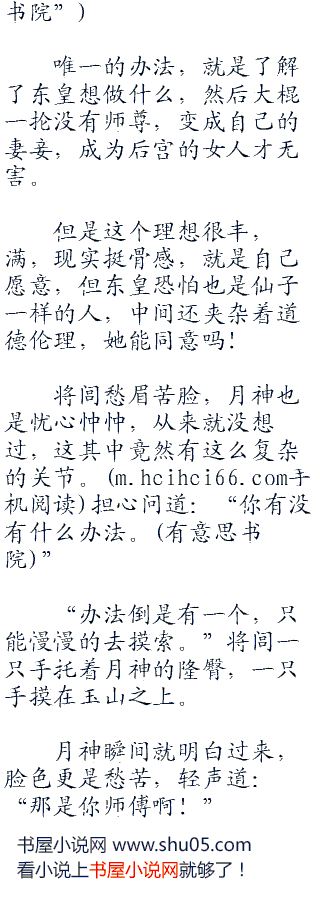 书院”)
唯一的办法，就是了解
了东皇想做什么，然后大棍
一抡没有师尊，变成自己的
妻妾，成为后宫的女人才无
害。
但是这个理想很丰，
满，现实挺骨感，就是自己
愿意，但东皇恐怕也是仙子
一样的人，中间还夹杂着道
德伦理，她能同意吗！
将闾愁眉苦脸，月神也
是忧心忡忡，从来就没想
过，这其中竟然有这么复杂
的关节。(m.hcihci66.com手
机阅读)担心问道：“你有没
有什么办法。(有意思书
院)”
“办法倒是有一个，只
能慢慢的去摸索。”将闾一
只手托着月神的隆臀，一只
手摸在玉山之上。
月神瞬间就明白过来，
脸色更是愁苦，轻声道：
“那是你师傅啊！”
书屋小说网 www.shu05.com
看小说上书屋小说网就够了！